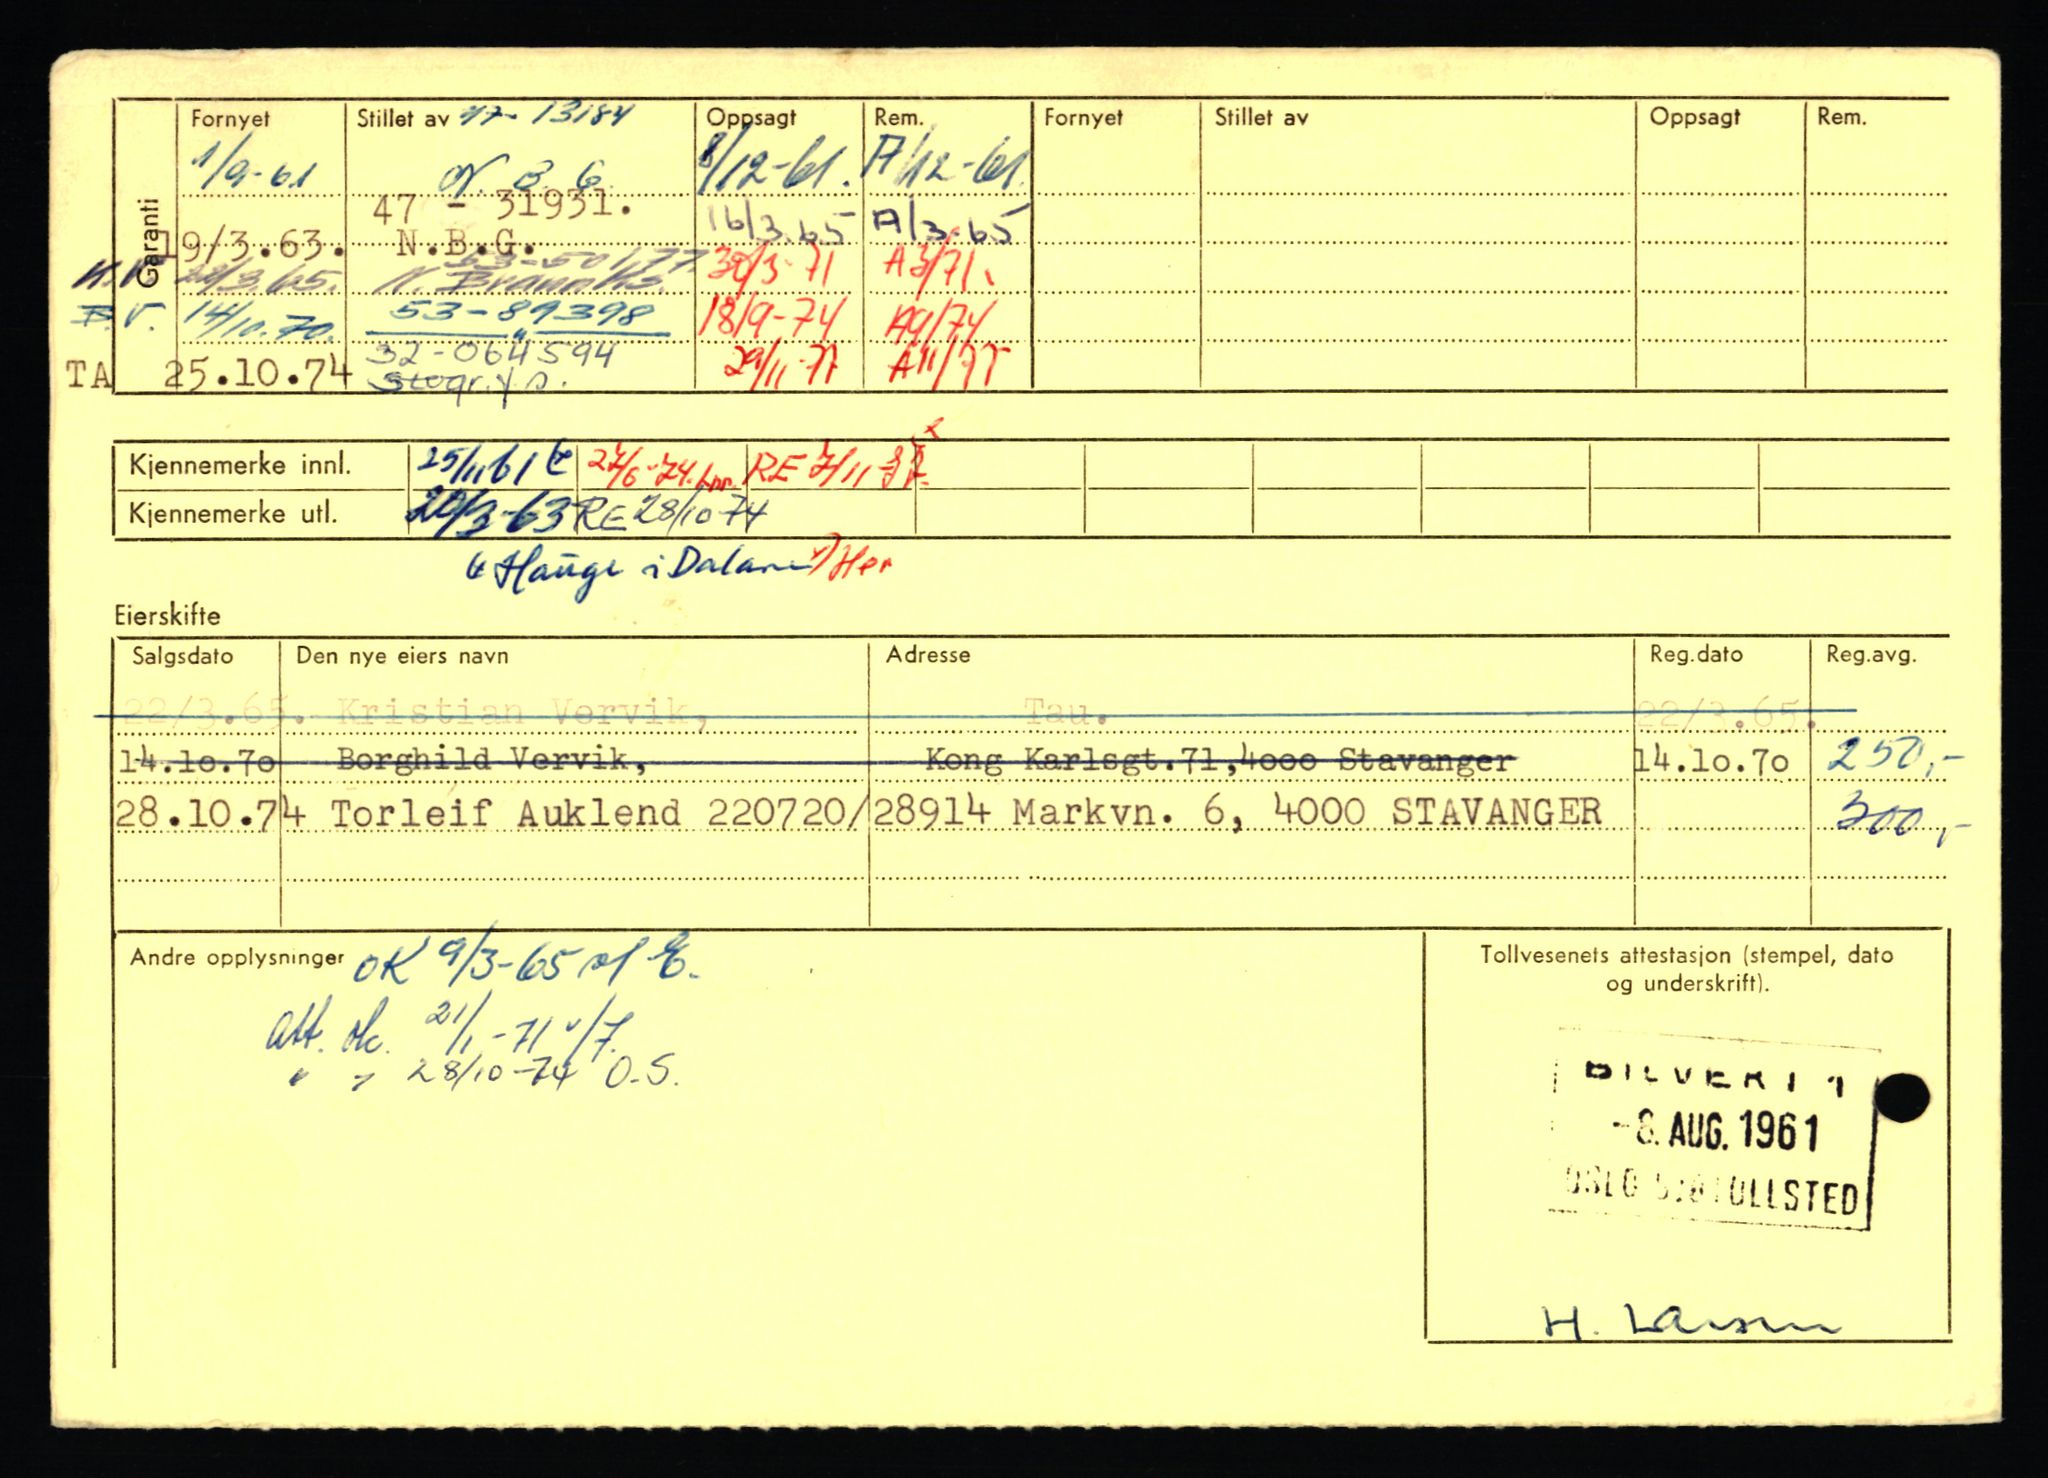 Garanti
Fornyet Stillet av 47-13184 Oppsagt Rem. Fornyet Stillet av Oppsagt Rem.
1/9-61 N.B.G. 8/12-61. A/12-61.
47 - 31931.
9/3.63. N.B.G. 16/3.65 A/3-65
53-50177.
30/3-71 A3/71.
B.V. 14/10.70. 53-89398 18/9-74 A9/74
32-064594
TA 25.10.74 29/11-77 A11/77
Kjennemerke innl. 25/11 61 27/6-74. RE 7/11
Kjennemerke utl. 20/3-63 RE 28/10-74
Hauge i Dalane Her
Eierskifte
Salgsdato Den nye eiers navn Adresse Reg.dato Reg.avg.
22/3.65. Kristian Vervik, Tau. 22/3.65.
14.10.70 Borghild Vervik, Kong Karlsgt.71,4000 Stavanger 14.10.70 250,-
28.10.74 Torleif Auklend 220720/28914 Markvn. 6, 4000 STAVANGER 300,-
Andre opplysninger OK 9/3-65
Att. ok. 21/1-71
" " 28/10-74 O.S.
Tollvesenets attestasjon (stempel, dato
og underskrift).
-8. AUG. 1961
OSLO
H. Larsen